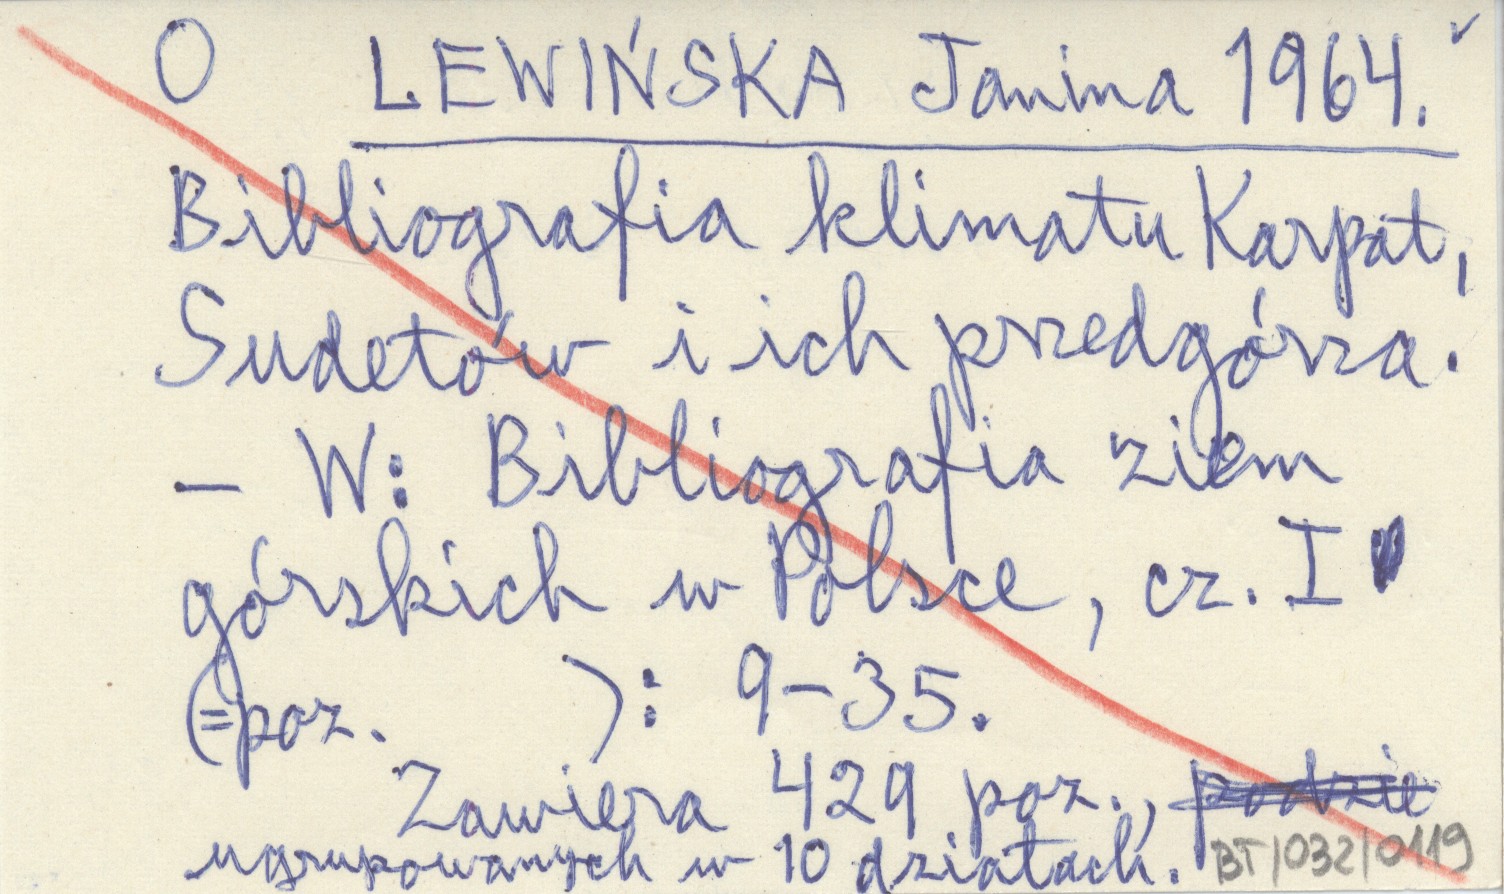 O LEWIŃSKA Janina 1964.
Bibliografia klimatu Karpat,
Sudetów i ich przedgórza.
– W: Bibliografia ziem
górskich w Polsce, cz. I
(=poz. ): 9–35.
Zawiera 429 poz., podzie
ugrupowanych w 10 działach.
BT/032/0119